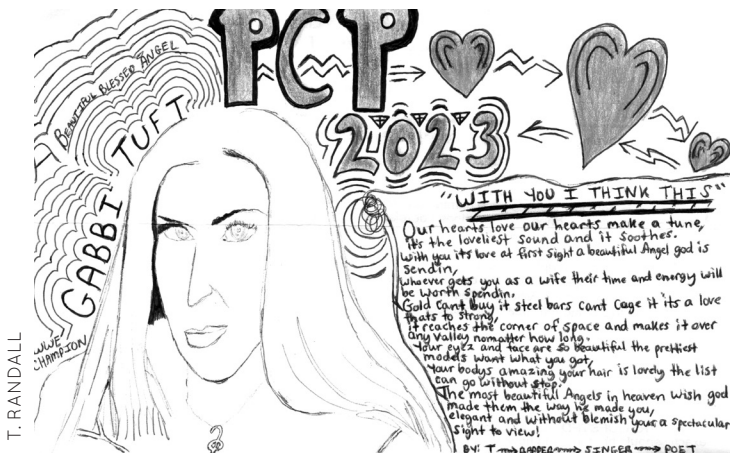 T. RANDALL
BEAUTIFUL BLESSED ANGEL
GABBI TUFT
WWE
CHAMPION
PCP
2023
"WITH YOU I THINK THIS"
Our hearts love our hearts make a tune,
it's the loveliest sound and it soothes.
With you its love at first sight a beautiful Angel god is
sendin,
whoever gets you as a wife their time and energy will
be worth spendin.
Gold cant buy it steel bars cant cage it its a love
thats to strong,
it reaches the corner of space and makes it over
any valley nomatter how long.
Your eyez and face are so beautiful the prettiest
models want what you got,
Your bodys amazing your hair is lovely the list
can go without stop.
The most beautiful Angels in heaven wish god
made them the way he made you,
elegant and without blemish your a spectacular
sight to view!
BY: T RAPPER SINGER POET